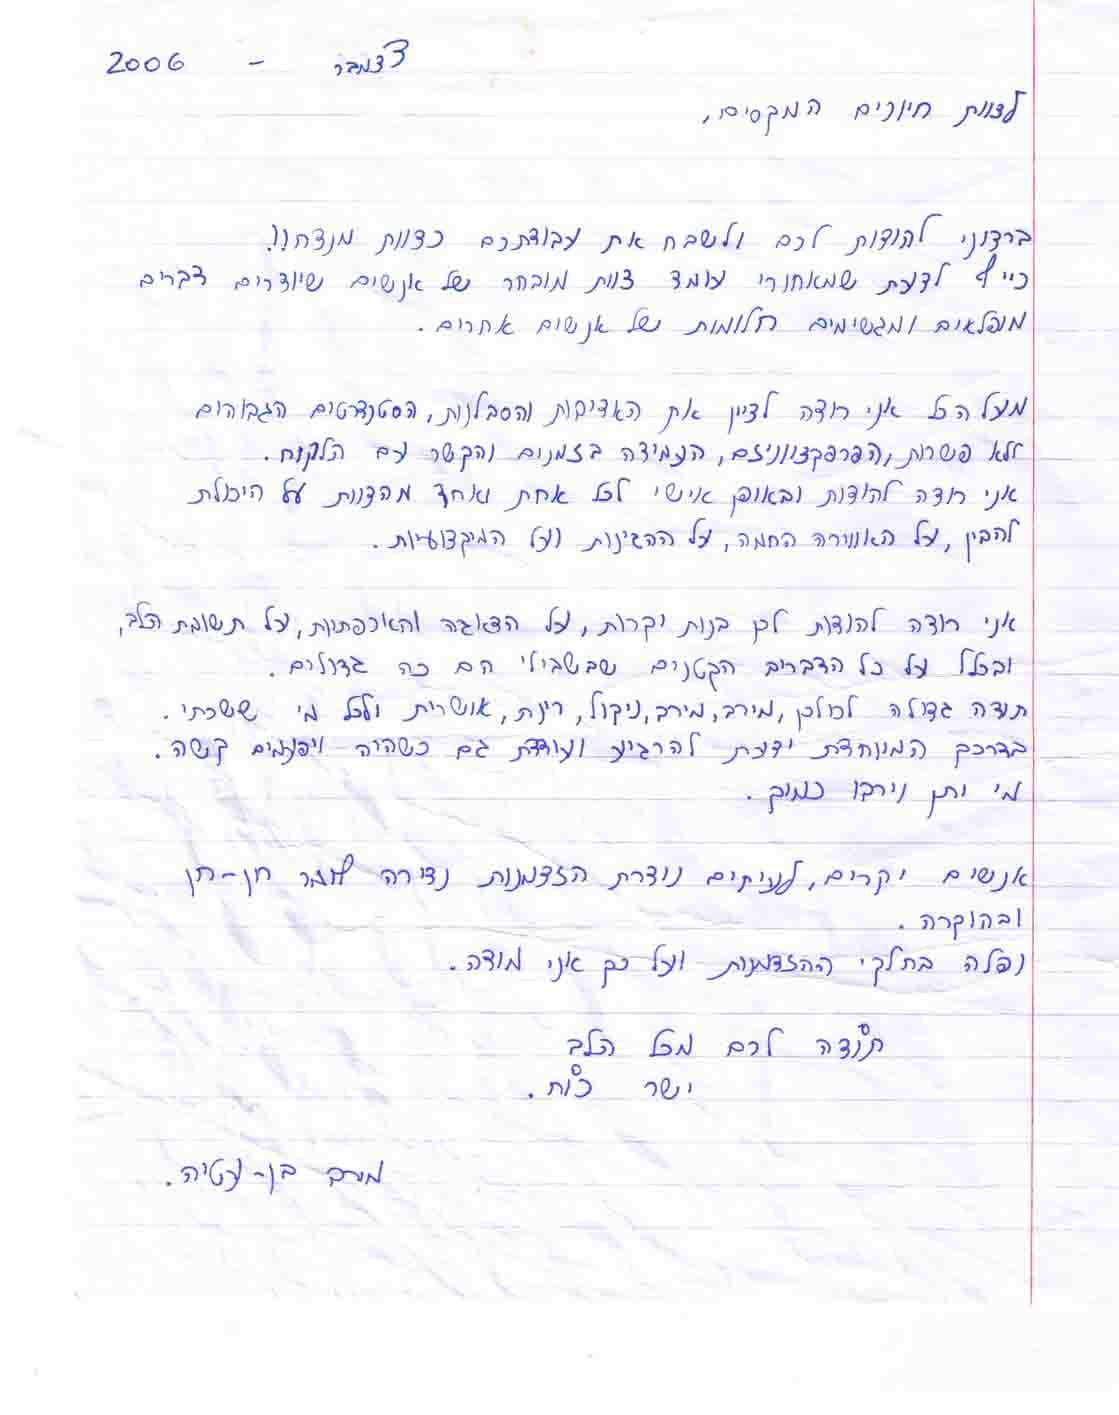 דצמבר - 2006
לצוות חיוכים המקסים,
ברצוני להודות לכם ולשבח את עבודתכם כצוות מנצח!!
כייף לדעת שמאחורי עומד צוות מובחר של אנשים שיוצרים דברים
מופלאים ומגשימים חלומות של אנשים אחרים.
מעל הכל אני רוצה לציין את האדיבות והסבלנות, הסטנדרטים הגבוהים
ללא פשרות, הפרפקציוניזם, העמידה בזמנים והקשר עם הלקוח.
אני רוצה להודות ובאופן אישי לכל אחת ואחד מהצוות על היכולת
להבין, על האווירה החמה, על ההגינות ועל המיקצועיות.
אני רוצה להודות לכן בנות יקרות, על הדאגה והאכפתיות, על תשומת הלב,
ובכלל על כל הדברים הקטנים שבשבילי הם כה גדולים.
תודה גדולה לכולכן, מירב, מירב, ניקול, רינת, אושרית ולכל מי ששכחתי.
בדרככן המיוחדת ידעתן להרגיע ועודדתן גם כשהיה לפעמים קשה.
מי יתן וירבו כמוכן.
אנשים יקרים, לעיתים נוצרת הזדמנות נדירה לומר חן-חן
ובהוקרה.
נפלה בחלקי ההזדמנות ועל כך אני מודה.
תודה לכם מכל הלב
ישר כוח.
מירב בן-עטיה.